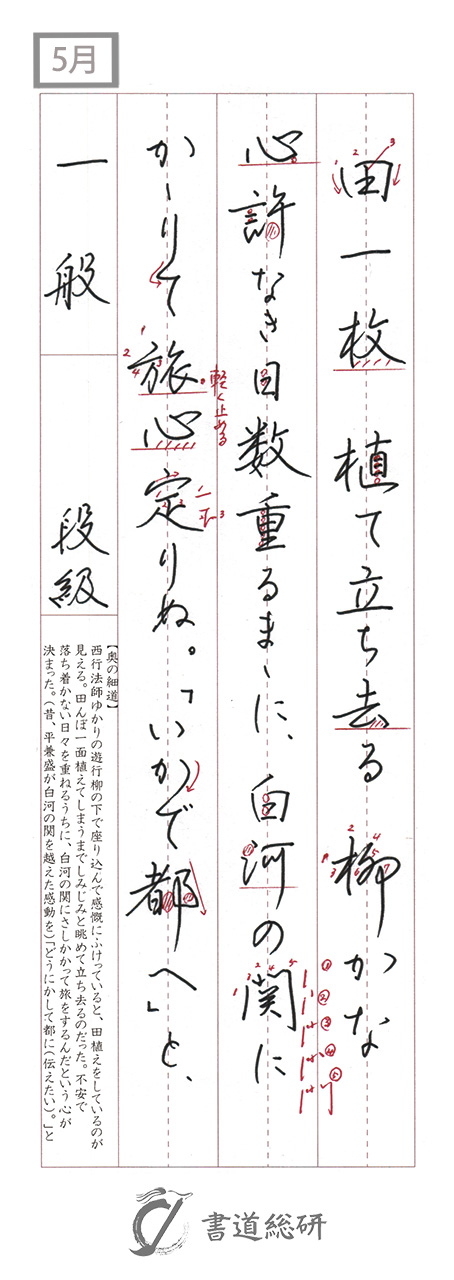 5月
田一枚植て立ち去る柳かな
心許なき日数重るまゝに、白河の関に
かゝりて旅心定りぬ。「いかで都へ」と、
軽く止める
一般
段級
【奥の細道】
西行法師ゆかりの遊行柳の下で座り込んで感慨にふけっていると、田植えをしているのが
見える。田んぼ一面植えてしまうまでしみじみと眺めて立ち去るのだった。不安で
落ち着かない日々を重ねるうちに、白河の関にさしかかって旅をするんだという心が
決まった。(昔、平兼盛が白河の関を越えた感動を)「どうにかして都に(伝えたい)。」と
書道総研